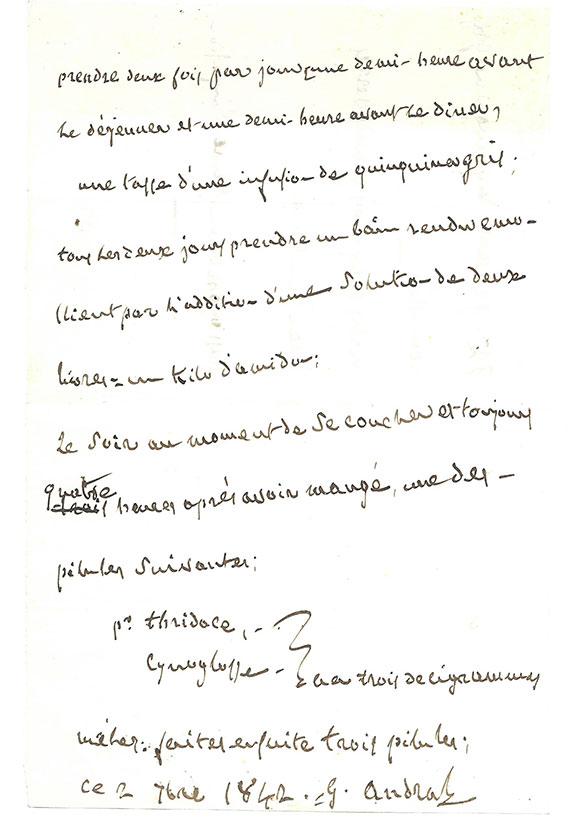 prendre deux fois par jour, une demi-heure avant
le déjeuner et une demi-heure avant le diner,
une tasse d'une infusion de quinquina gris;
tous les deux jours prendre un bain rendu emo-
llient par l'addition d'une solution de deux
livres = un kilo d'amidon;
Le soir au moment de se coucher et toujours
quatre
trois heures après avoir mangé, une des -
pilules suivantes;
pr thridace, -
Cynoglosse - aa trois decigrammes
mêlez. faites ensuite trois pilules;
ce 2 7bre 1842. G. andral